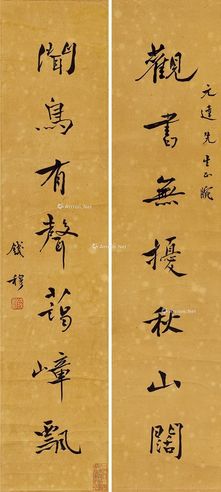 元達先生正
觀書無擾秋山闊
聞鳥有聲藹嶂飄
錢穆
Artron.Net